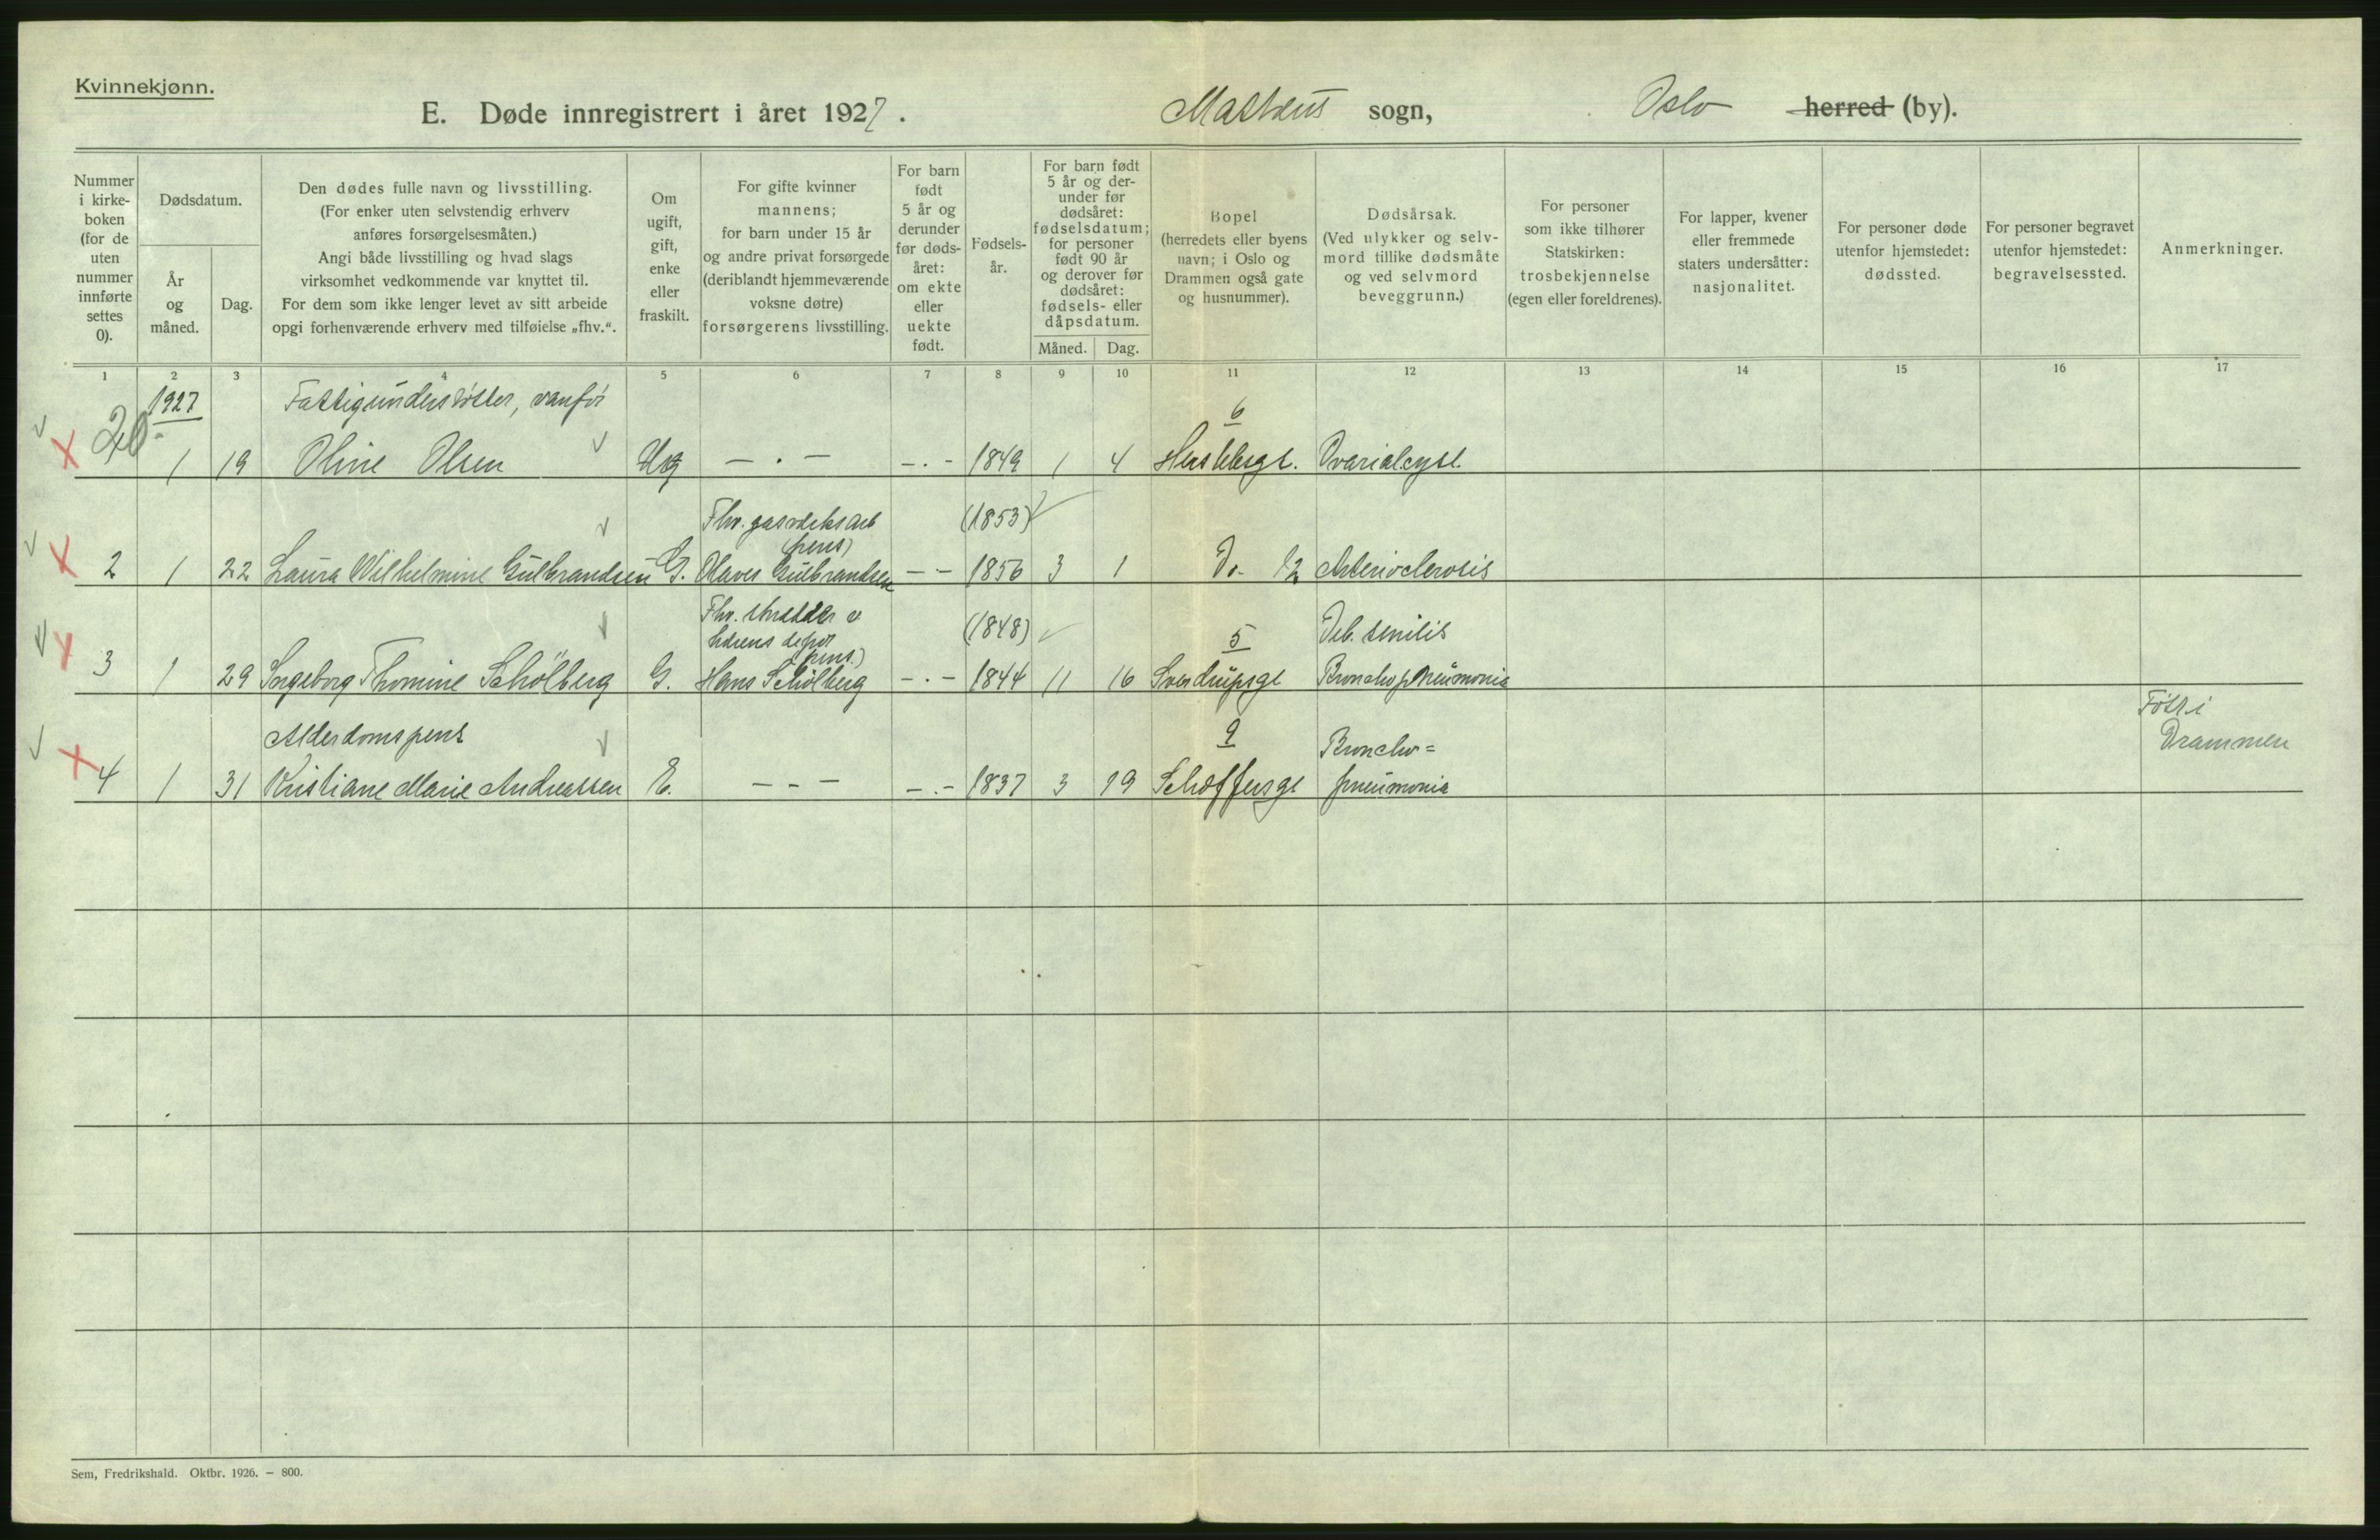 Kvinnekjønn.
E. Døde innregistrert i året 1927. Mattæus sogn, Oslo herred (by).
Nummer i kirke-boken (for de uten nummer innførte settes 0).
Dødsdatum.
År og måned.
Dag.
Den dødes fulle navn og livsstilling.
(For enker uten selvstendig erhverv
anføres forsørgelsesmåten.)
Angi både livsstilling og hvad slags
virksomhet vedkommende var knyttet til.
For dem som ikke lenger levet av sitt arbeide
opgi forhenværende erhverv med tilføielse „fhv.“.
Om ugift, gift, enke eller fraskilt.
For gifte kvinner
mannens;
for barn under 15 år
og andre privat forsørgede
(deriblandt hjemmeværende
voksne døtre)
forsørgerens livsstilling.
For barn født 5 år og derunder før døds-året: om ekte eller uekte født.
Fødsels-år.
For barn født 5 år og der-under før dødsåret: fødselsdatum; for personer født 90 år og derover før dødsåret: fødsels- eller dåpsdatum.
Måned. Dag.
Bopel
(herredets eller byens
navn; i Oslo og
Drammen også gate
og husnummer).
Dødsårsak.
(Ved ulykker og selv-
mord tillike dødsmåte
og ved selvmord
beveggrunn.)
For personer
som ikke tilhører
Statskirken:
trosbekjennelse
(egen eller foreldrenes).
For lapper, kvener
eller fremmede
staters undersåtter:
nasjonalitet.
For personer døde
utenfor hjemstedet:
dødssted.
For personer begravet
utenfor hjemstedet:
begravelsessted.
Anmerkninger.
1 2 3 4 5 6 7 8 9 10 11 12 13 14 15 16 17
1927 Fattigunderstøttet, vanfør 6
1 19 Oline Olsen Ug - . - - . - 1849 1 4 Herslebsgt. Ovarialcyst.
Fhv. gasverksarb (1853)
(pens)
2 1 22 Laura Wilhelmine Gulbrandsen G. Olaves Gulbrandsen - - 1856 3 1 Do 12 Arterioclerosis
Fhv. skredder v (1848) 5 Deb. senilis
pens.)
3 1 29 Ingeborg Thomine Schölberg G. Hans Schölberg - . - 1844 11 16 Sverdrupsgt Bronchopneumonia
Født i
Alderdomspens 9 Broncho= Drammen
4 1 31 Kristiane Marie Andreassen E. - - - . - 1837 3 19 Schæffersgt pneumonia
Sem, Fredrikshald. Oktbr. 1926. – 800.